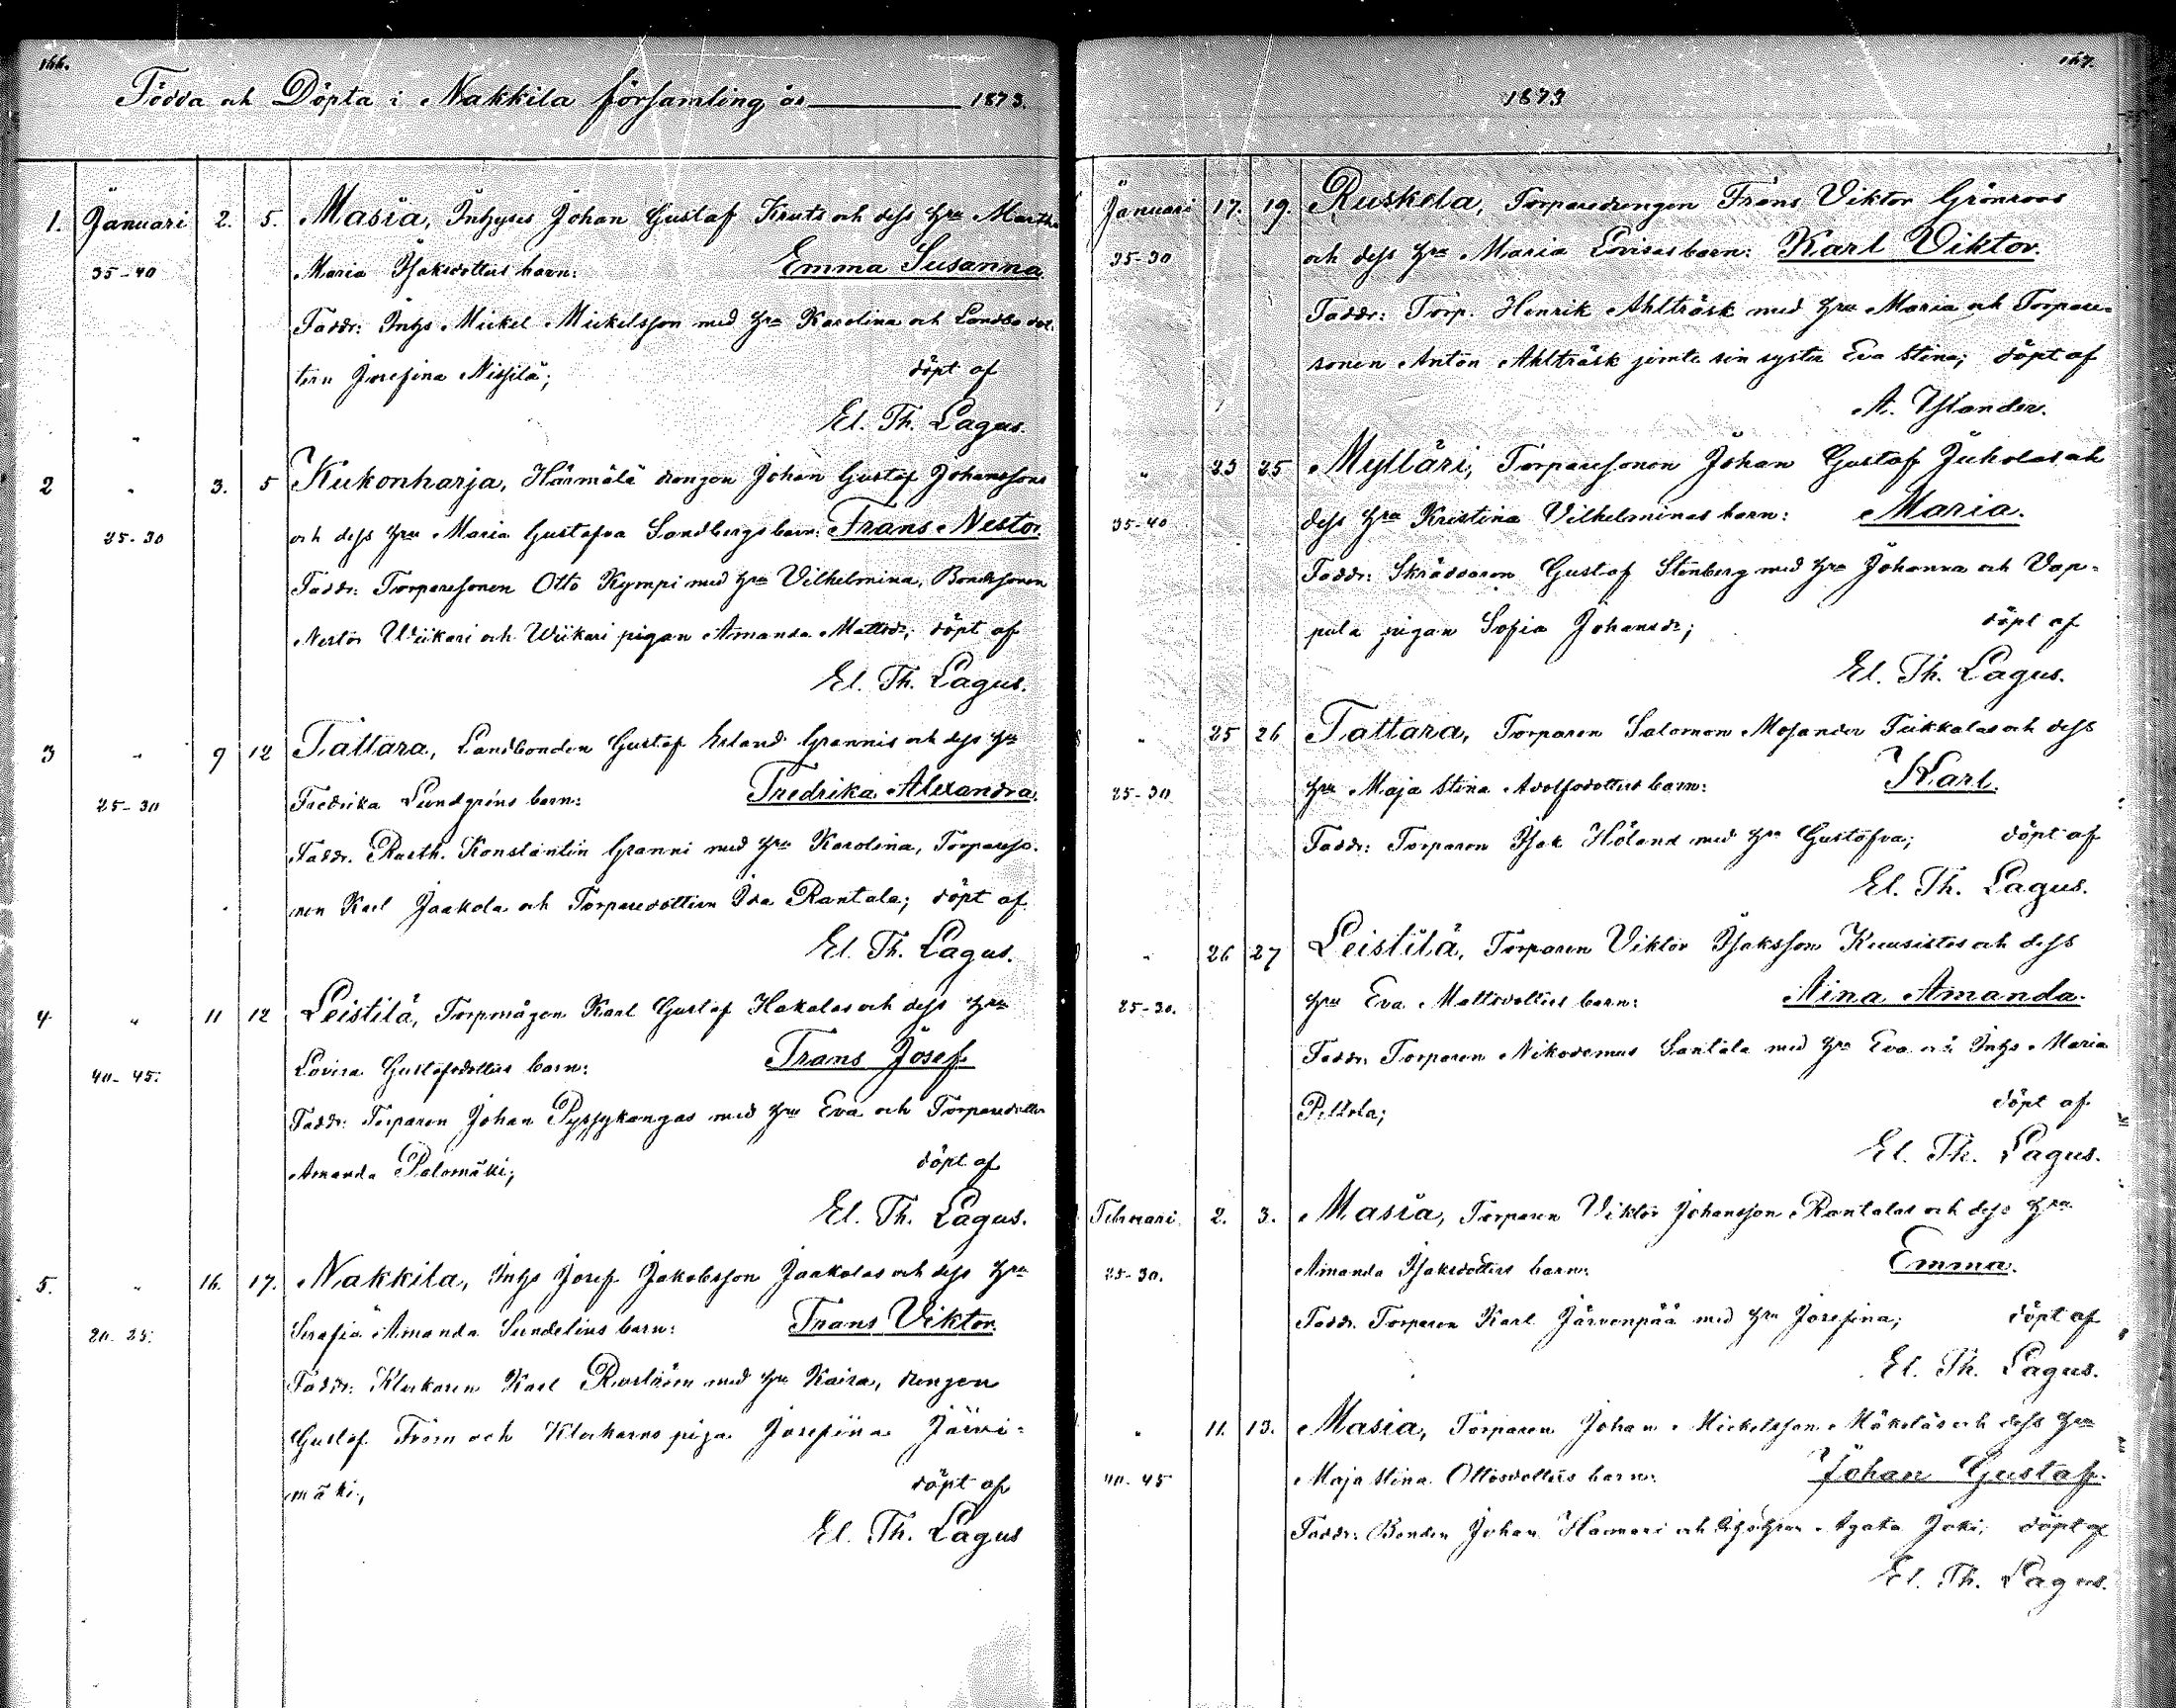 166.
Födda och Döpta i Nakkila församling år 1873.
1. Januari 2. 5. Masia, Inhyses Johan Gustaf Knuts och dess hru Martha
35-40 Maria Isaksdotters barn: Emma Susanna.
Faddr: Inhs Mickel Mickelsson med hru Karolina och Landbodot-
tern Josefina Nissilä; döpt af
El. Th. Lagus.
2 " 3. 5 Kukonharja, Härmälä drengen Johan Gustaf Johanssons
25-30 och dess hru Maria Gustafva Sandbergs barn: Frans Nestor.
Faddr: Torparesonen Otto Kympi med hru Vilhelmina, Bondesonen
Nestor Wiikari och Wiikari pigan Amanda Mattsdr; döpt af
El. Th. Lagus.
3 " 9 12 Tattara, Landbonden Gustaf Erland Grannis och dess hru
25-30 Fredrika Lundgréns barn: Fredrika Alexandra.
Faddr. Rusth. Konstantin Granni med hru Karolina, Torpareso-
nen Karl Jaakola och Torparedottern Ida Rantala; döpt af
El. Th. Lagus.
4 " 11 12 Leistilä, Torpmågen Karl Gustaf Hakalas och dess hru
40-45. Lovisa Gustafsdotters barn: Frans Josef.
Faddr: Torparen Johan Pyssykangas med hru Eva och Torparedottern
Amanda Palomäki; döpt af
El. Th. Lagus.
5. " 16. 17. Nakkila, Inhs Josef Jakobsson Jaakolas och dess hru
20-25. Serafia Amanda Sundelius barn: Frans Viktor.
Faddr: Klockaren Karl med hru Kaisa, drengen
Gustaf From och Klockarns piga Josefina Järvi-
mäki; döpt af
El. Th. Lagus
167.
1873
Januari 17. 19. Ruskila, Torparedrengen Frans Viktor Grönroos
35-30 och dess hru Maria Lovisas barn: Karl Viktor.
Faddr: Torp. Henrik Ahlträsk med hru Maria och Torpare-
sonen Anton Ahlträsk jemte sin syster Eva Stina; döpt af
A. Ylander.
" 23 25 Mylläri, Torparesonen Johan Gustaf Juholas och
35-40 dess hru Kristina Vilhelminas barn: Maria.
Faddr: Skräddaren Gustaf Stenberg med hru Johanna och Vap-
pula pigan Sofia Johansdr; döpt af
El. Th. Lagus.
" 25 26 Tattara, Torparen Salomon Mosander Tiikkalas och dess
25-30 hru Maja Stina Adolfsdotters barn: Karl.
Faddr: Torparen Isak Höland med hru Gustafva; döpt af
El. Th. Lagus.
" 26 27 Leistilä, Torparen Viktor Isaksson Kuusistos och dess
25-30. hru Eva Mattsdotters barn: Aina Amanda.
Faddr. Torparen Nikodemus Santala med hru Eva och Inhs Maria
Peltola; döpt af
El. Th. Lagus.
Februari 2. 3. Masia, Torparen Viktor Johansson Rantalas och dess hru
25-30. Amanda Isaksdotters barn: Emma.
Faddr. Torparen Karl Järvenpää med hru Josefina; döpt af
El. Th. Lagus.
" 11. 13. Masia, Torparen Johan Mickelsson Mäkeläs och dess hru
40-45 Maja Stina Ottosdotters barn: Johan Gustaf.
Faddr: Bonden Johan Hammari och Agata Joki; döpt af
El. Th. Lagus.